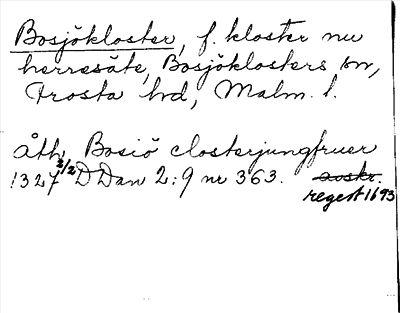 Bosjökloster, f. kloster nu
herresäte, Bosjöklosters sn,
Frosta hd, Malm. l.
åth. Bosiö closterjungfruer
1327 2/2 DDan 2:9 nr 363. avskr.
regest 1693